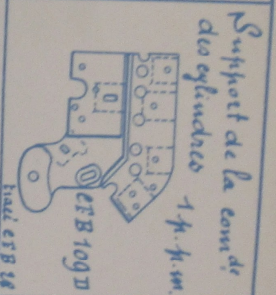 Support de la com^de
des cylindres 1 p. p. m.
EFB 109 D
tracé EFB 28